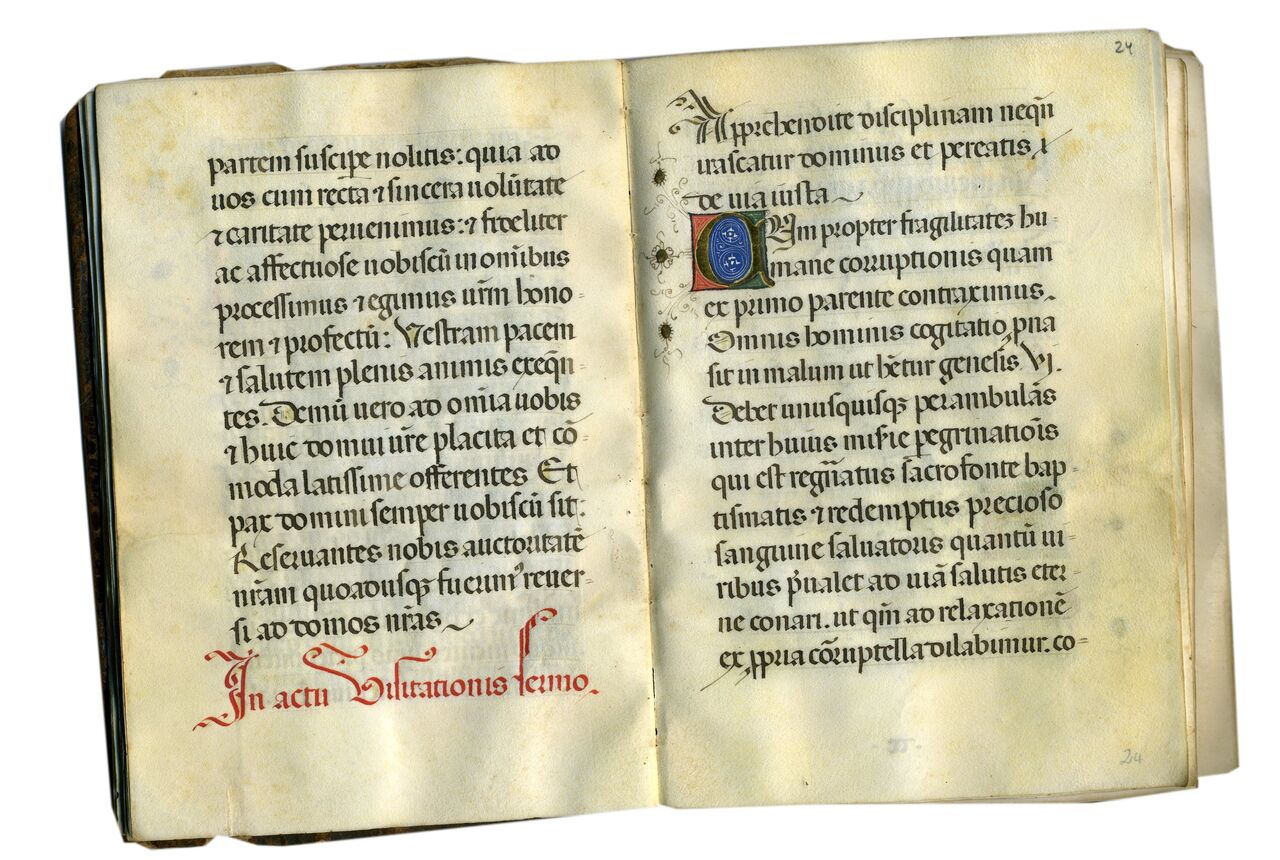 partem suscipe nolitis: quia ad
uos cum recta ⁊ sincera uolūtate
⁊ caritate peruenimus: ⁊ fideliter
ac affectuose uobiscū in om̄ibus
processimus ⁊ egimus ur̄m bono-
rem ⁊ profectū: Vestram pacem
⁊ salutem plenis animis exeqn̄-
tes. Demū uero ad om̄ia uobis
⁊ huic domui ur̄e placita et cō-
moda latissime offerentes Et
pax domini semper uobiscū sit:
Reseruantes nobis auctoritatē
nr̄am quoadusqꝫ fuerimꝰ reuer-
si ad domos nr̄as ~
In actu Visitationis sermo.
24
Apprehendite disciplinam neqn̄
irascatur dominus et pereatis
de uia iusta ~
QVm propter fragilitateꝫ hu
mane corruptionis quam
ex primo parente contraximus.
Omnis hominis cogitatio pna
sit in malum ut hētur genesis VI.
Debet unusquisqꝫ perambulās
inter huius mis̄ie pegrinatiōis
qui est regn̄atus sacro fonte bap-
tismatis ⁊ redemptus precioso
sanguine saluatoris quantū ui-
ribus p̄ualet ad uiā salutis eter-
ne conari. ut qm̄ ad relaxationē
ex ꝓpria cōruptella dilabimur. co-
24